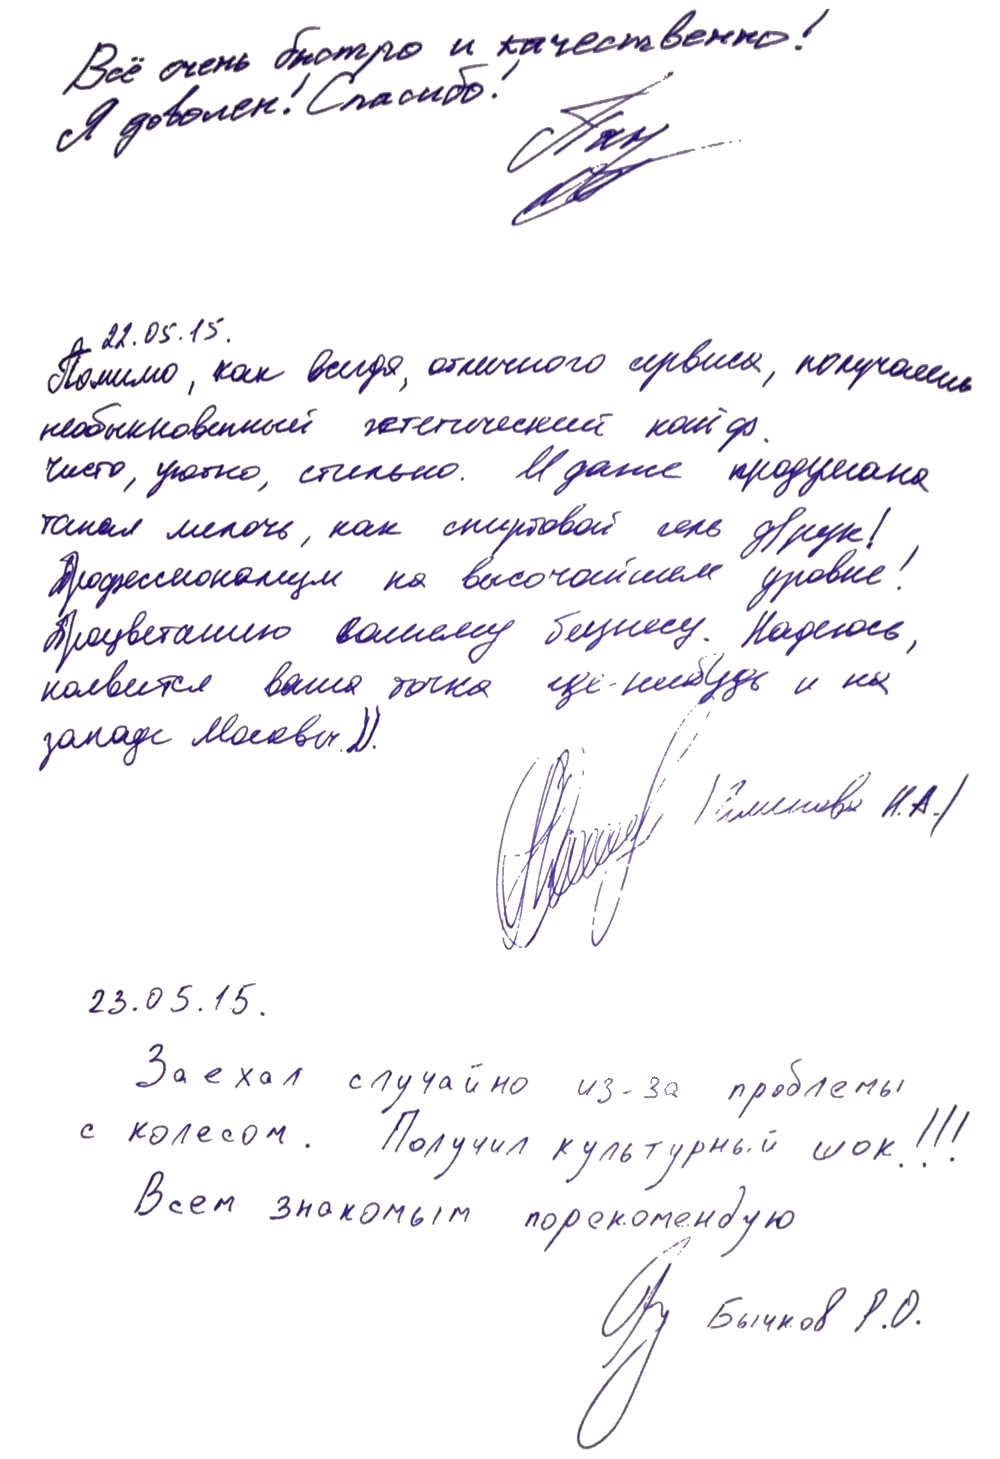 Всё очень быстро и качественно!
Я доволен! Спасибо!
22.05.15.
Помимо, как всегда, отличного сервиса, получаешь
необыкновенный эстетический кайф.
Чисто, уютно, стильно. И даже продумана
такая мелочь, как спиртовой гель д/рук!
Профессионализм на высочайшем уровне!
Процветанию вашему бизнесу. Надеюсь,
появится ваша точка где-нибудь и на
западе Москвы :)).
Н.А./
23.05.15.
Заехал случайно из-за проблемы
с колесом. Получил культурный шок!!!
Всем знакомым порекомендую
Бычков Р.О.